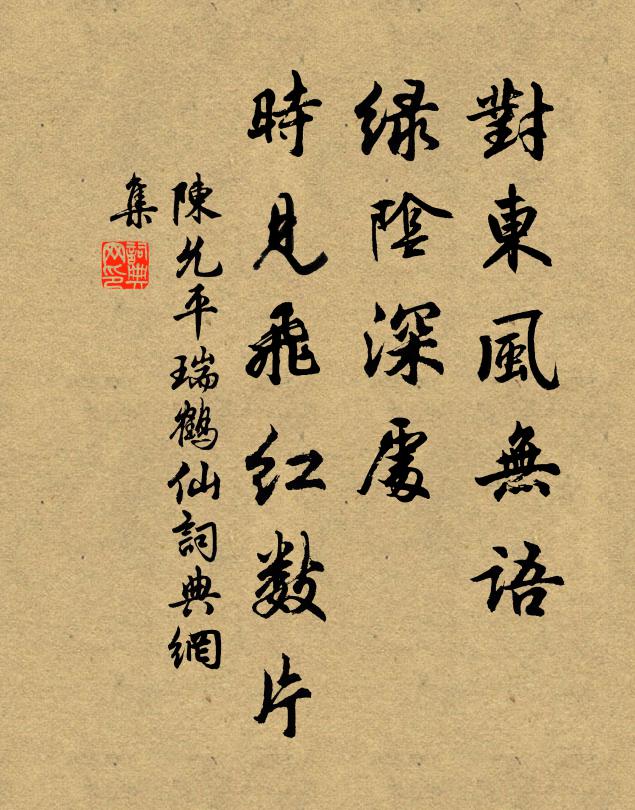 對東風無語
緑陰深處
時見飛紅數片
陳允平瑞鶴仙詞典網
集
詞典
网印